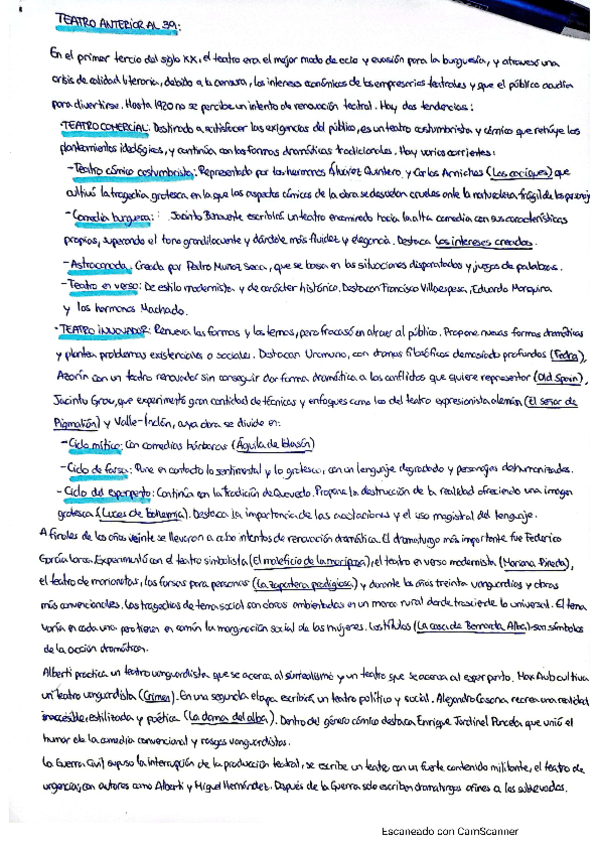 TEATRO ANTERIOR AL 39:
En el primer tercio del siglo XX, el teatro era el mejor modo de ocio y evasión para la burguesía, y atravesó una
crisis de calidad literaria, debido a la censura, los intereses económicos de los empresarios teatrales y que el público acudía
para divertirse. Hasta 1920 no se percibe un intento de renovación teatral. Hay dos tendencias:
·TEATRO COMERCIAL: Destinado a satisfacer las exigencias del público, es un teatro costumbrista y cómico que rehúye los
planteamientos ideológicos, y continúa con las formas dramáticas tradicionales. Hay varias corrientes:
-Teatro cómico costumbrista: Representado por los hermanos Álvarez Quintero y Carlos Arniches (Los caciques) que
cultivó la tragedia grotesca, en la que los aspectos cómicos de la obra se desvelan crueles ante la naturaleza frágil de los
-Comedia burguesa: Jacinto Benavente escribirá un teatro encaminado hacia la alta comedia con sus características
propias, superando el tono grandilocuente y dándole más fluidez y elegancia. Destaca Los intereses creados.
-Astracanada: Creada por Pedro Muñoz Seca, que se basa en las situaciones disparatadas y juegos de palabras.
-Teatro en verso: De estilo modernista y de carácter histórico. Destacan Francisco Villaespesa, Eduardo Marquina
y los hermanos Machado.
·TEATRO INNOVADOR: Renueva las formas y los temas, pero fracasó en atraer al público. Propone nuevas formas dramáticas
y plantea problemas existenciales o sociales. Destacan Unamuno, con dramas filosóficos demasiado profundos (Fedra),
Azorín con un teatro renovador sin conseguir dar forma dramática a los conflictos que quiere representar (Old Spain),
Jacinto Grau, que experimentó gran cantidad de técnicas y enfoques como los del teatro expresionista alemán (El señor de
Pigmalión) y Valle-Inclán, cuya obra se divide en:
-Ciclo mítico: Con comedias bárbaras (Águila de blasón)
-Ciclo de farsa: Pone en contacto lo sentimental y lo grotesco, con un lenguaje degradado y personajes deshumanizados.
-Ciclo del esperpento: Continúa con la tradición de Quevedo. Propone la destrucción de la realidad ofreciendo una imagen
grotesca (Luces de bohemia). Destaca la importancia de las acotaciones y el uso magistral del lenguaje.
A finales de los años veinte se llevaron a cabo intentos de renovación dramática. El dramaturgo más importante fue Federico
García Lorca. Experimentó con el teatro simbolista (El maleficio de la mariposa), el teatro en verso modernista (Mariana Pineda),
el teatro de marionetas, las farsas para personas (La zapatera prodigiosa) y durante los años treinta vanguardias y obras
más convencionales. Las tragedias de tema social con obras ambientadas en un marco rural donde trasciende lo universal. El tema
varía en cada una pero tienen en común la marginación social de las mujeres. Los títulos (La casa de Bernarda Alba) son símbolos
de la acción dramática.
Alberti practica un teatro vanguardista que se acerca al surrealismo y un teatro que se acerca al esperpento. Max Aub cultiva
un teatro vanguardista (Crimen). En una segunda etapa escribirá un teatro político y social. Alejandro Casona, recrea una realidad
inaccesible, estilizada y poética (La dama del alba). Dentro del género cómico destaca Enrique Jardiel Poncela que unió el
humor de la comedia convencional y rasgos vanguardistas.
La Guerra Civil supuso la interrupción de la producción teatral, se escribe un teatro con un fuerte contenido militante, el teatro de
urgencia, con autores como Alberti y Miguel Hernández. Después de la Guerra solo escriben dramaturgos afines a los sublevados.
Escaneado con CamScanner